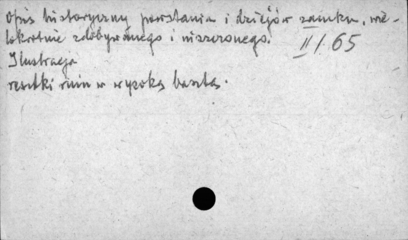 Opis historyczny powstania i dziejów zamku, wie-
lokrotnie zdobywanego i niszczonego. II 1.65
Ilustracja
resztki ruin w wysoką basztą.